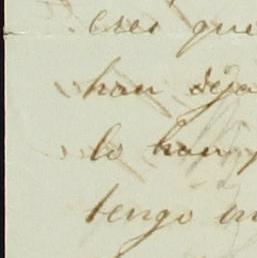 cree que
han deja
lo han
tengo un